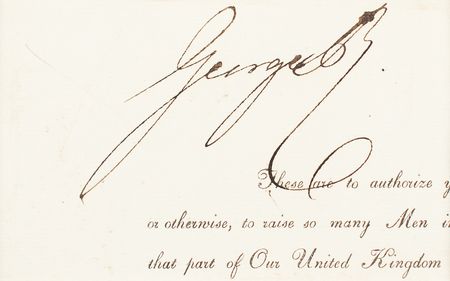 George R
These are to authorize y
or otherwise, to raise so many Men in
that part of Our United Kingdom